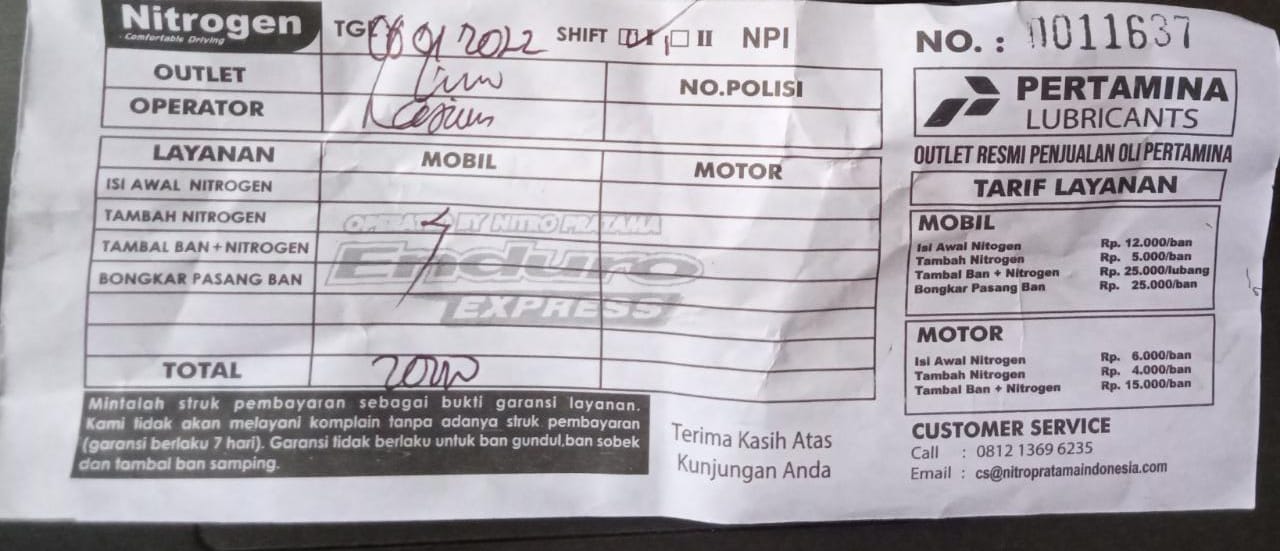 Nitrogen
Comfortable Driving
TGL 2022 SHIFT I II NPI
OUTLET
NO.POLISI
OPERATOR
LAYANAN MOBIL MOTOR
ISI AWAL NITROGEN
TAMBAH NITROGEN 4
TAMBAL BAN + NITROGEN
BONGKAR PASANG BAN
OPERATED BY NITRO PRATAMA
Enduro
EXPRESS
TOTAL 20000
Mintalah struk pembayaran sebagai bukti garansi layanan.
Kami tidak akan melayani komplain tanpa adanya struk pembayaran
(garansi berlaku 7 hari). Garansi tidak berlaku untuk ban gundul,ban sobek
dan tambal ban samping.
Terima Kasih Atas
Kunjungan Anda
NO. : 0011637
PERTAMINA
LUBRICANTS
OUTLET RESMI PENJUALAN OLI PERTAMINA
TARIF LAYANAN
MOBIL
Isi Awal Nitogen Rp. 12.000/ban
Tambah Nitrogen Rp. 5.000/ban
Tambal Ban + Nitrogen Rp. 25.000/lubang
Bongkar Pasang Ban Rp. 25.000/ban
MOTOR
Isi Awal Nitrogen Rp. 6.000/ban
Tambah Nitrogen Rp. 4.000/ban
Tambal Ban + Nitrogen Rp. 15.000/ban
CUSTOMER SERVICE
Call : 0812 1369 6235
Email : cs@nitropratamaindonesia.com